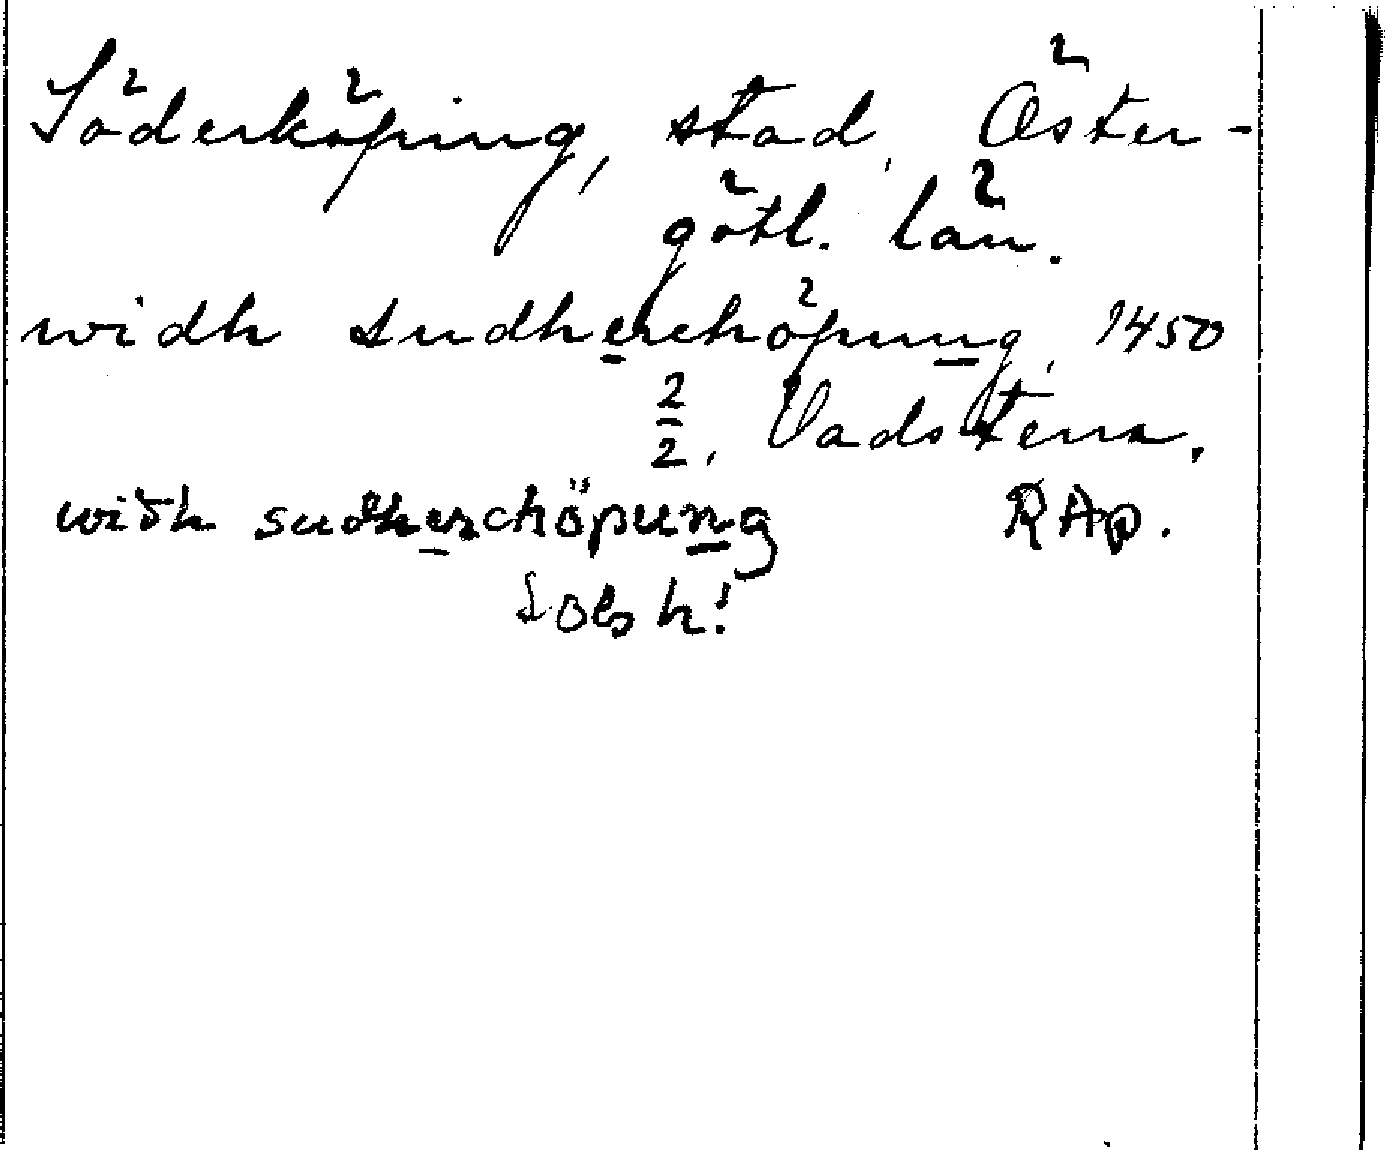 Söderköping, stad, Öster-
götl. län.
widh sudherchöpung, 1450
2/2, Vadstena.
widh sudherchöpung RAp.